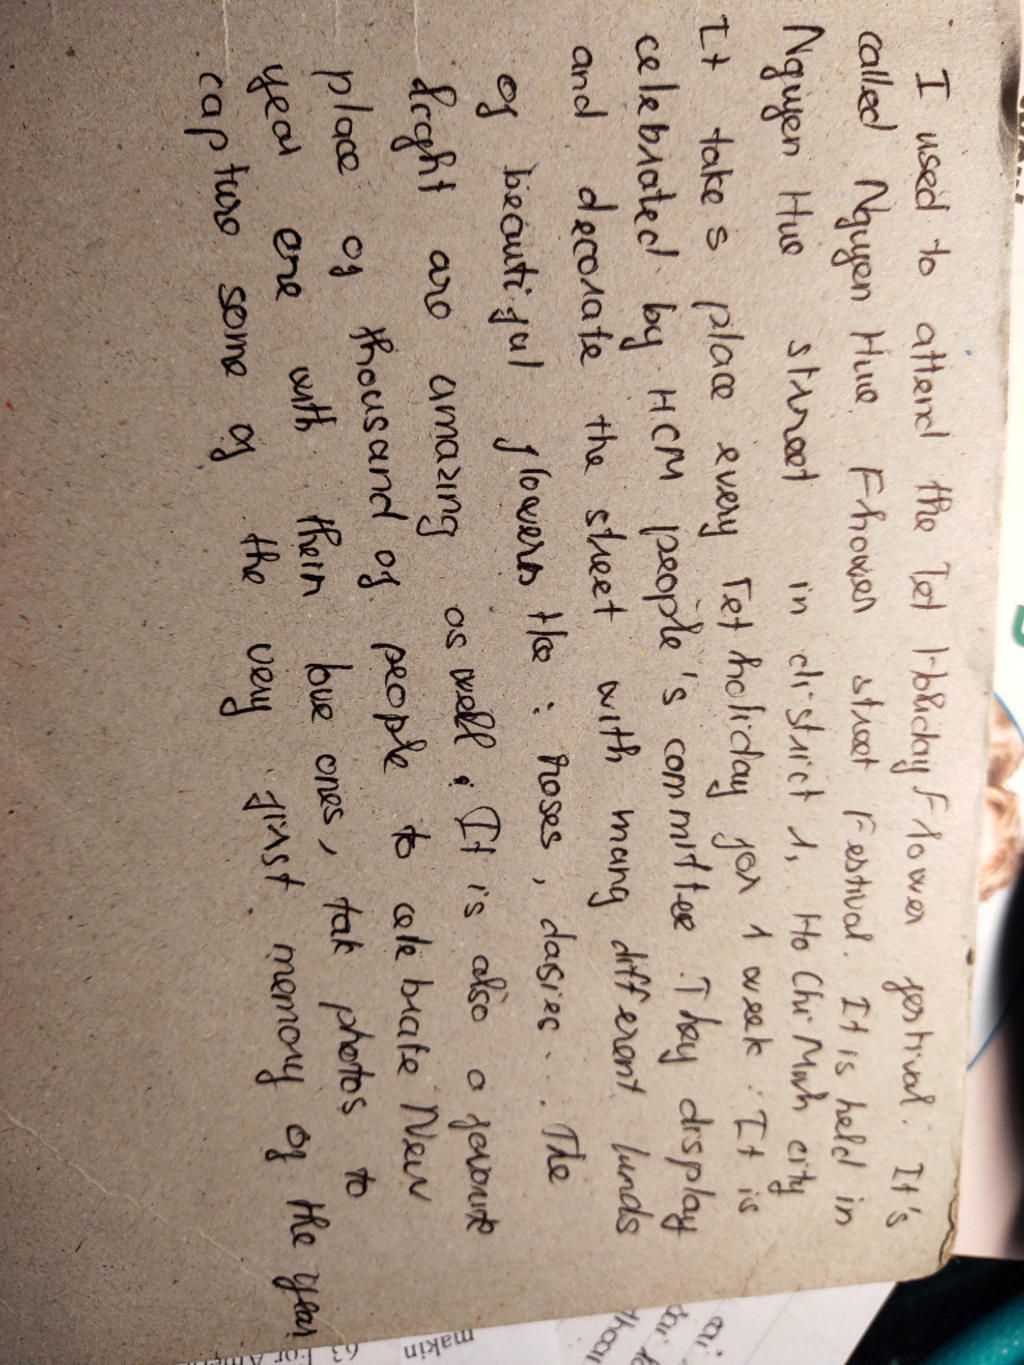 I used to attend the Tet Holiday Flower festival. It's
called Nguyen Hue Fhower street Festival. It is held in
Nguyen Hue street in district 1, Ho Chi Minh city
It takes place every Tet holiday for 1 week. It is
celebrated by HCM people's committee. They display
and decorate the street with many different kinds
of beautiful flowers like: roses, dasies... The
light are amazing as well. It is also a favourite
place of thousand of people to celebrate New
year eve with their love ones, tak photos to
capture some of the very first memory of the year
makin
63 For Ameri